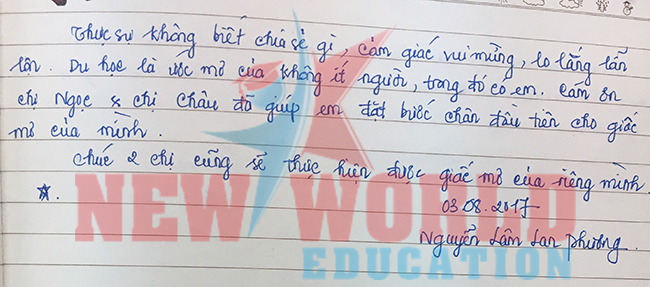 Thực sự không biết chia sẻ gì, cảm giác vui mừng, lo lắng lẫn
lộn. Du học là ước mơ của không ít người, trong đó có em. Cảm ơn
chị Ngọc & chị Châu đã giúp em đặt bước chân đầu tiên cho giấc
mơ của mình.
Chúc 2 chị cũng sẽ thực hiện được giấc mơ của riêng mình.
03.08.2017
Nguyễn Lâm Lan Phương.
NEW WORLD
EDUCATION